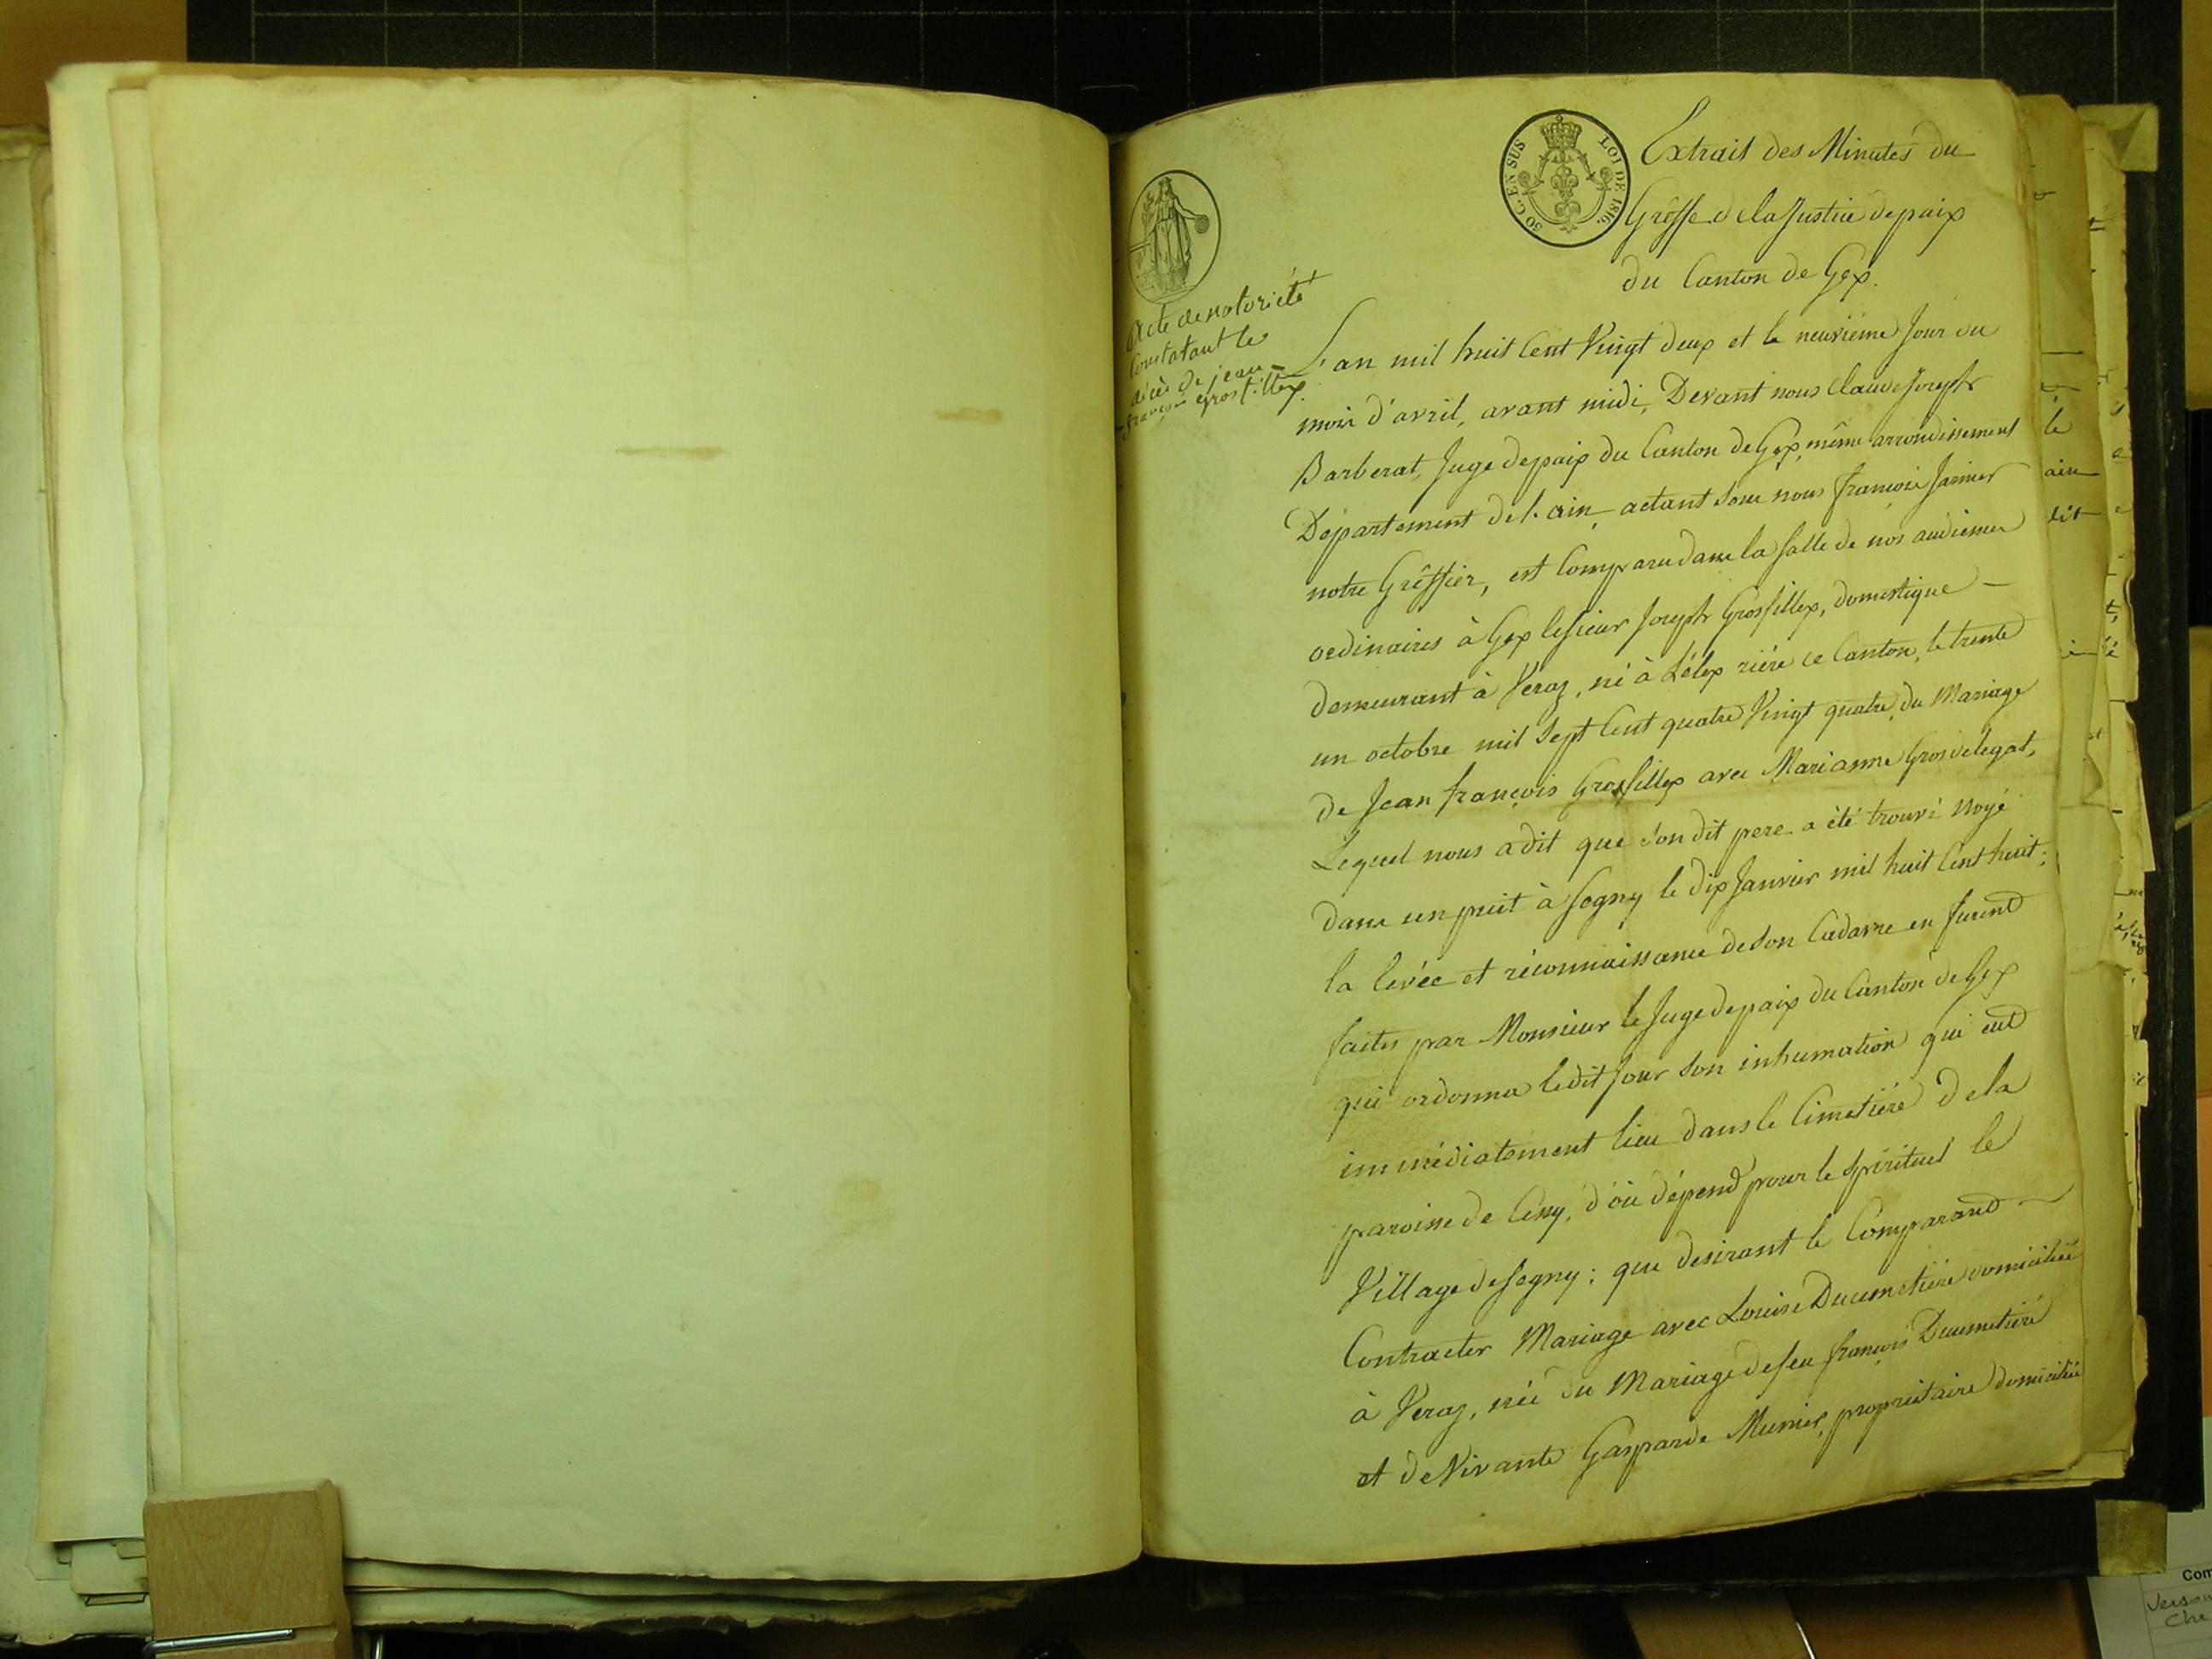 30 C. EN SUS LOI DE 1816.
Extrait des Minutes du
Grêffe de la Justice de paix
du Canton de Gex.
Acte de notoriété
Constatant le
décès de jean
françois grosfillex.
L'an mil huit Cent Vingt deux et le neuvième Jour du
mois d'avril, avant midi, Devant nous Claude Joseph
Barberat, Juge de paix du Canton de Gex, même arrondissement
Département de l'ain, actant sous nous françois Janier
notre Grêffier, est Comparu dans la salle de nos audiences
ordinaires à Gex le sieur Joseph Grosfillex, domestique
demeurant à Veraz, né à Lélex rière ce Canton, le trente
un octobre mil Sept Cent quatre Vingt quatre, du Mariage
de Jean françois Grosfillex avec Marianne Grosdelegat,
Lequel nous a dit que son dit pere a été trouvé noyé
dans un puit à Segny le dix Janvier mil huit Cent huit;
la levée et réconnaissance de son Cadavre en furent
faites par Monsieur le Juge de paix du Canton de Gex
qui ordonna le dit Jour son inhumation qui eut
immédiatement lieu dans le Cimetière de la
paroisse de Cessy, d'où dépend pour le spirituel le
Village de Segny; que desirant le Comparant
Contracter Mariage avec Louise Ducimetière domiciliée
à Veraz, née du Mariage de feu françois Ducimetière
et de Vivante Gasparde Munier, propriétaire domiciliée
le
ain
dit
Com